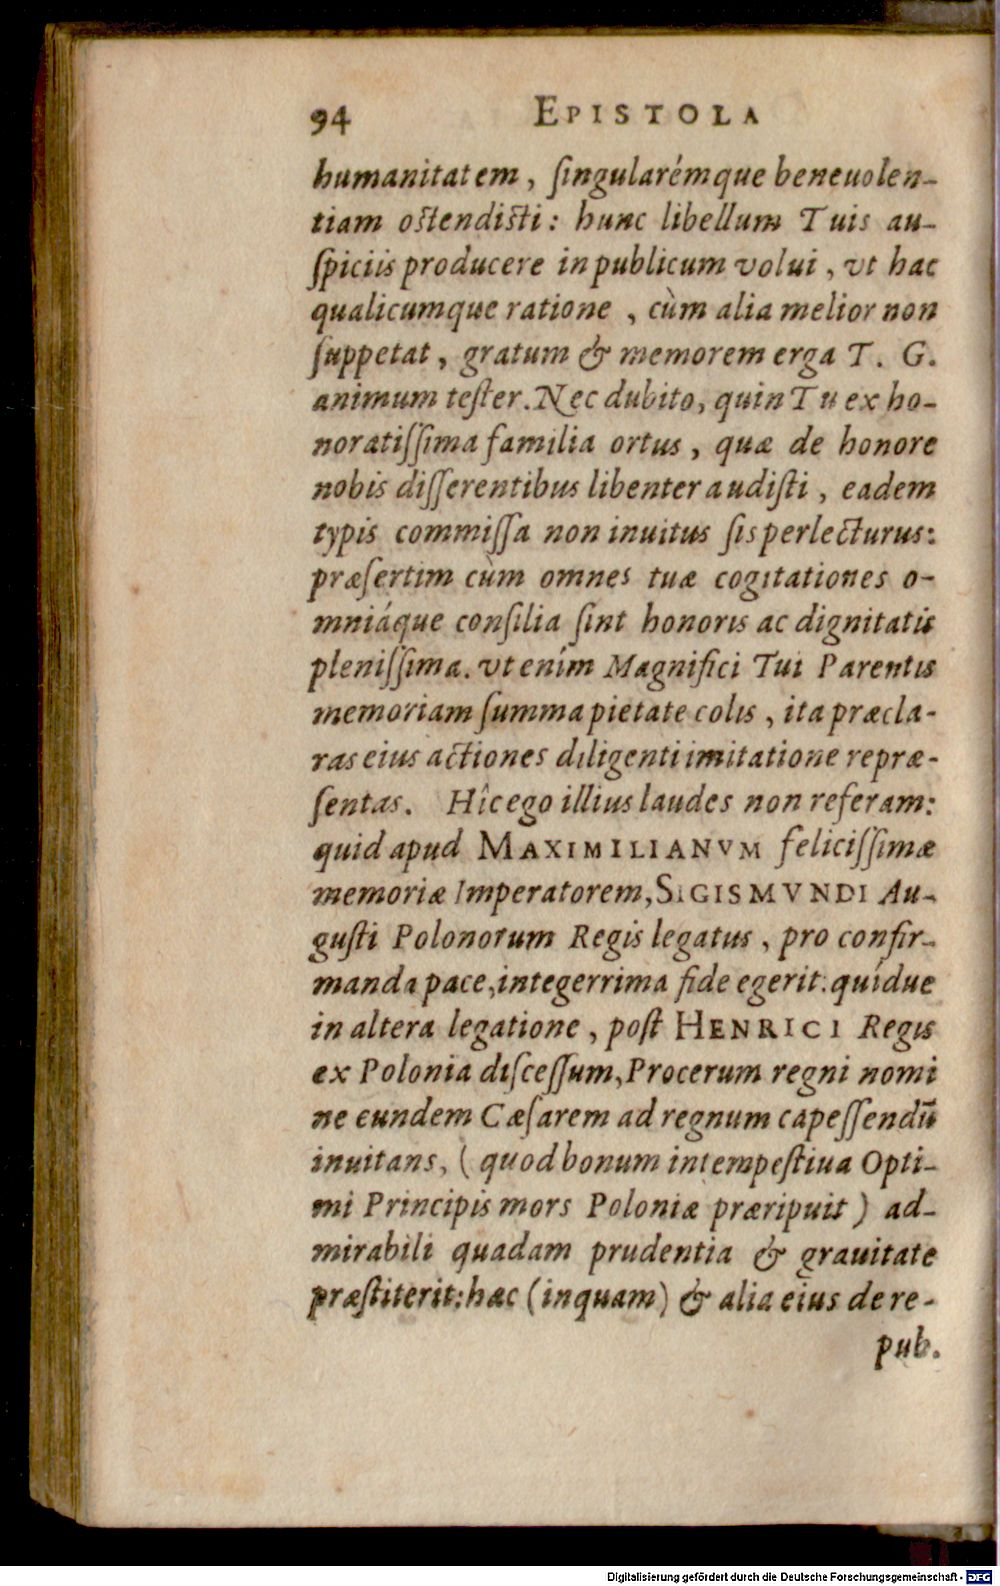 94 EPISTOLA
humanitatem, ſingularémque beneuolen-
tiam oſtendiſti: hunc libellum Tuis au-
ſpiciis producere in publicum volui, vt hac
qualicumque ratione, cùm alia melior non
ſuppetat, gratum & memorem erga T. G.
animum teſter. Nec dubito, quin Tu ex ho-
noratiſſima familia ortus, quæ de honore
nobis diſſerentibus libenter audiſti, eadem
typis commiſſa non inuitus ſis perlecturus:
præſertim cùm omnes tuæ cogitationes o-
mniáque conſilia ſint honoris ac dignitatis
pleniſſima. vt enim Magnifici Tui Parentis
memoriam ſumma pietate colis, ita præcla-
ras eius actiones diligenti imitatione repræ-
ſentas. Hîc ego illius laudes non referam:
quid apud MAXIMILIANVM feliciſſimæ
memoriæ Imperatorem, SIGISMVNDI Au-
guſti Polonorum Regis legatus, pro confir-
manda pace, integerrima fide egerit: quidue
in altera legatione, poſt HENRICI Regis
ex Polonia diſceſſum, Procerum regni nomi
ne eundem Cæſarem ad regnum capeſſendū
inuitans, (quod bonum intempeſtiua Opti-
mi Principis mors Poloniæ præripuit) ad-
mirabili quadam prudentia & grauitate
præſtiterit: hæc (inquam) & alia eius de re-
pub.
Digitalisierung gefördert durch die Deutsche Forschungsgemeinschaft - DFG